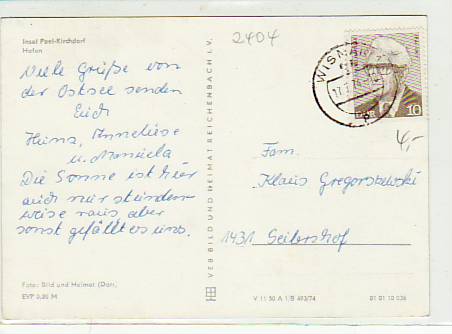 Insel Poel-Kirchdorf
Hafen
2404
Viele Grüße von
der Ostsee senden
Euch
Heinz, Anneliese
u. Manuela
Die Sonne ist hier
auch nur stunden
weise raus aber
sonst gefällt es uns.
Foto: Bild und Heimat (Dorr)
EVP 0,20 M
VEB BILD UND HEIMAT REICHENBACH I. V.
WISMAR
DDR 10
4,-
Fam.
Klaus Gregorszewski
1431 Seilershof
V 11 50 A 1/B 493/74
01 01 10 036